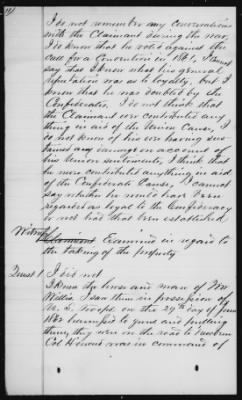 I do not remember any conversations
with the Claimant during the war,
I do know that he voted against the
call for a Convention in 1861, I cannot
say that I know what his general
reputation was as to loyalty, but I
know that he was doubted by the
Confederates, I do not think that
the Claimant ever contributed any
thing in aid of the Union Cause, I
do not know of his ever having sus-
tained any damages on account of
his Union sentiments, I think that
he never contributed anything in aid
of the Confederate Cause, I cannot
say whether he could have been
regarded as loyal to the Confederacy
or not had that been established
Witness
Claimant Examined in regard to
the taking of the property
Quest 1 I did not
2 I knew the horse and mare of Wm
Willis, I saw them in possession of
U. S. troops on the 29th day of June
1862 harnessed to guns and pulling
them, they were on the road to
Col Howard was in command of